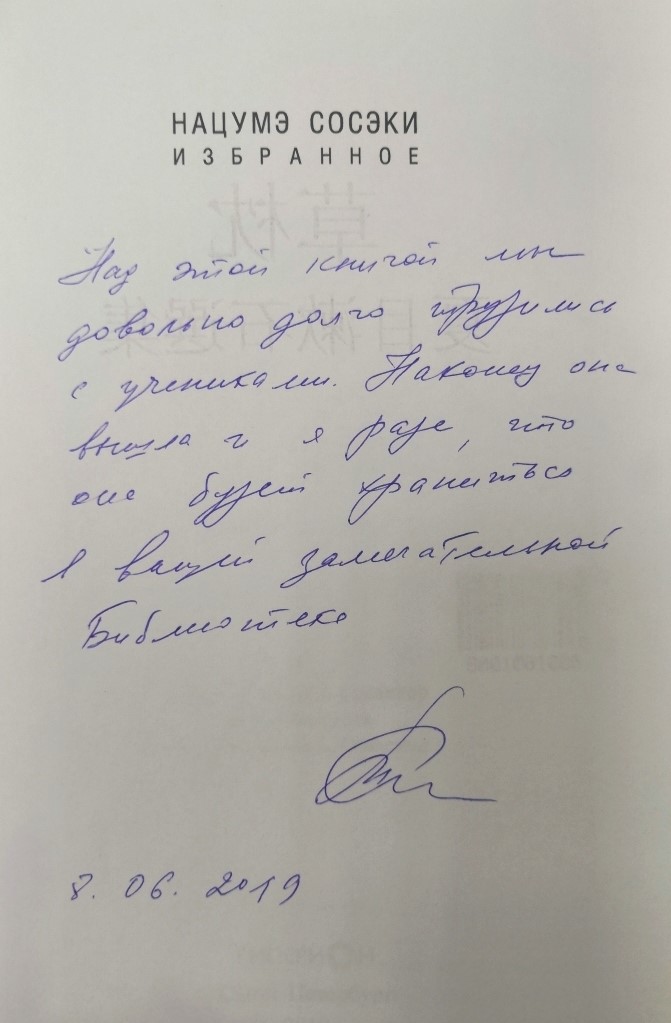 НАЦУМЭ СОСЭКИ
ИЗБРАННОЕ
Над этой книгой мы
довольно долго трудились
с учениками. Наконец она
вышла и я рада, что
она будет храниться
в вашей замечательной
Библиотеке
8.06.2019